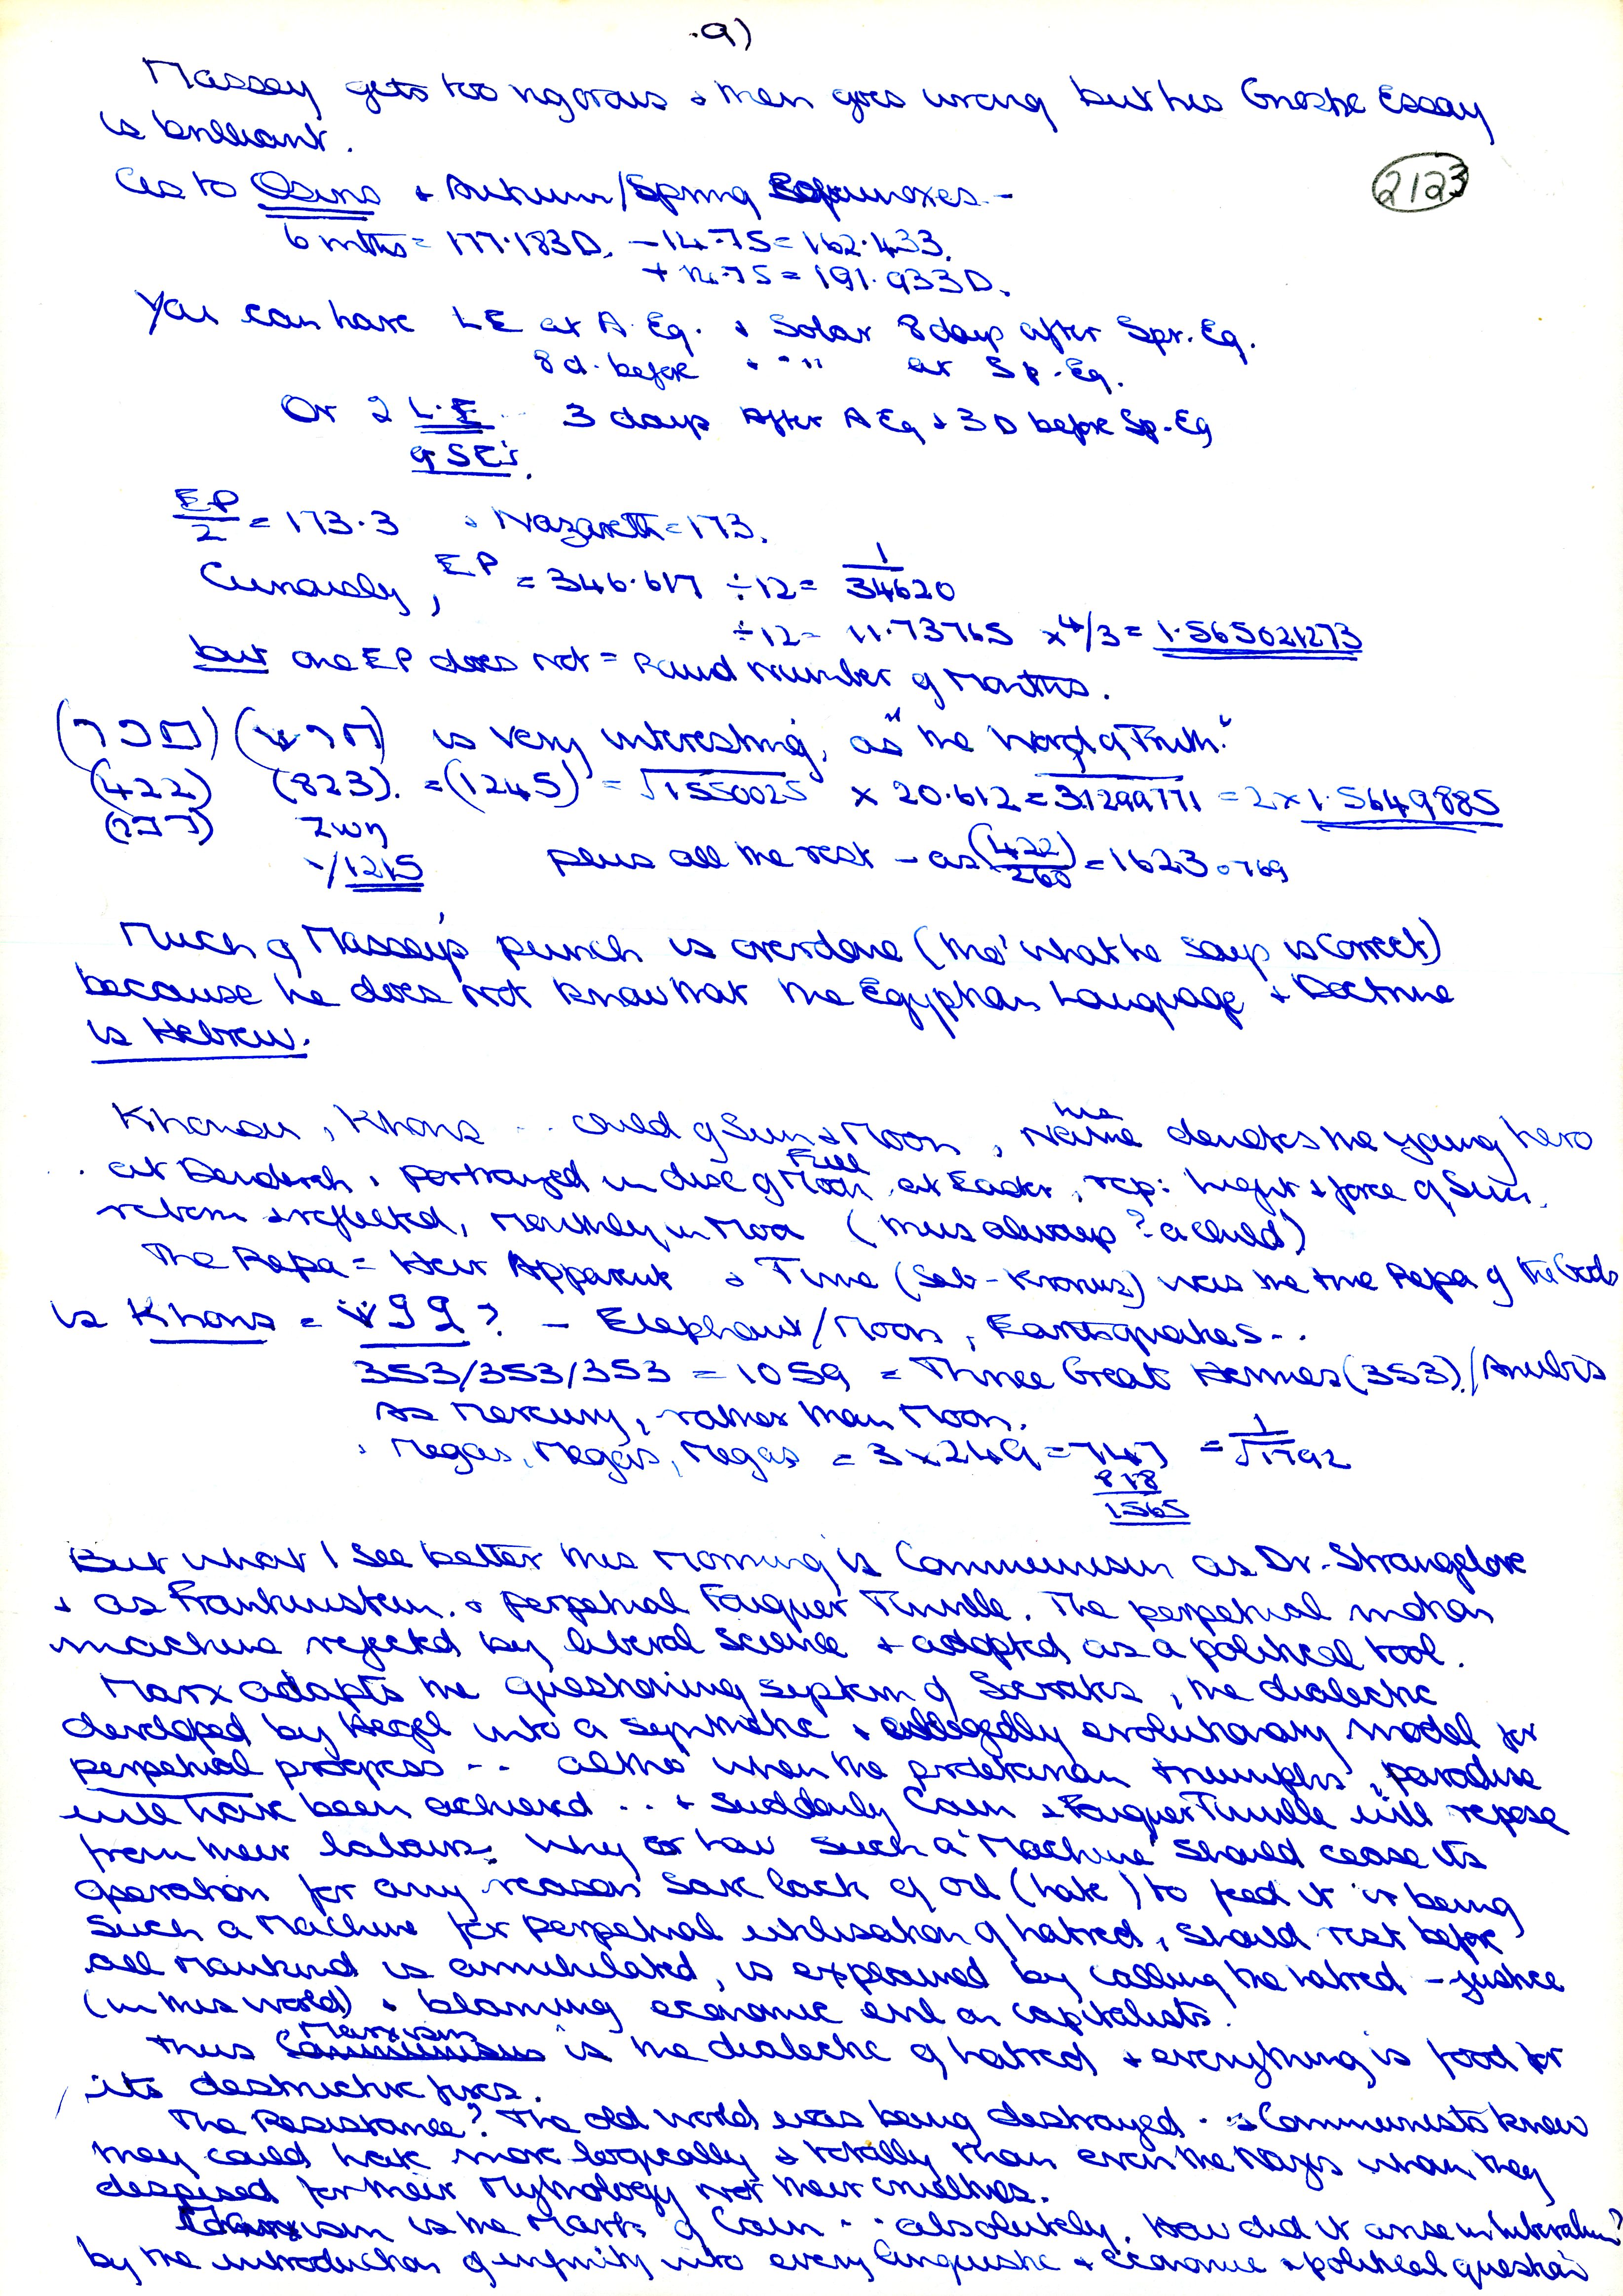 .9)
Massey gets too rigorous & then goes wrong but his Gnostic Essay
is brilliant.
2123
As to Osiris & Autumn/Spring Equinoxes -
6 mths = 177.183D. - 14.75 = 162.433.
+ 14.75 = 191.933D.
You can have LE at A. Eq. & Solar 8 days after Spr. Eq.
8 d. before & " " at Sp. Eq.
Or 2 L.E 3 days After A Eq & 3D before Sp. Eq
or SE's.
EP/2 = 173.3 & Nazareth = 173.
Curiously, EP = 346.617 ÷12 = 1/34620
÷12 = 11.73765 x 4/3 = 1.565021273
but one EP does not = Round Number of Months.
(422) (823). = (1245) = √1550025 x 20.612 = 31299771 = 2 x 1.5649885
√1215 plus all the rest - as (422)/260 = 1623.0769
Much of Massey's punch is overdone (tho' what he says is correct)
because he does not know that the Egyptian Language & Doctrine
is Hebrew.
Khonsu, Khons .. Child of Sun & Moon, his Name denotes the young hero
.. at Denderah, portrayed in disc of Full Moon at Easter, rep: light & force of Sun,
reborn & reflected, monthly in Moon (thus always ? a child)
The Repa = Heir Apparent & Time (Seb-Kronus) was the true Repa of the Gods
Is Khons = ? - Elephant/Moon, Earthquakes..
353/353/353 = 1059 = Three Great Hermes (353)./Anubis
As Mercury, rather than Moon.
& Megas, Megas, Megas = 3 x 249 = 747 = 1/√1792
818
1565
But what I see better this Morning is Communism as Dr. Strangelove
& as Frankenstein. & perpetual Fouquier Tinville. The perpetual motion
machine rejected by liberal Science & adopted as a political tool.
Marx adapts the questioning system of Socrates, the dialectic
developed by Hegel into a synthetic & allegedly evolutionary model for
perpetual progress .. altho' when the proletarian triumphs, paradise
will have been achieved .. & Suddenly Cain & Fouquier Tinville will repose
from their labours. Why or how such a 'Machine' should cease its
operation for any reason save lack of oil (hate) to feed it it being
such a Machine for perpetual utilisation of hatred, should rest before
all Mankind is annihilated, is explained by calling the hatred - justice
(in this world) & blaming economic evil on capitalists.
Thus Marxism is the dialectic of hatred & everything is food for
its destructive fires.
The Resistance? The old world was being destroyed .. & Communists knew
they could hate more logically & totally than even the Nazis whom they
despised for their Mythology not their cruelties.
Marxism is the Mark of Cain .. absolutely. How did it arise in liberalism?
by the introduction of infinity into every linguistic & economic & political question